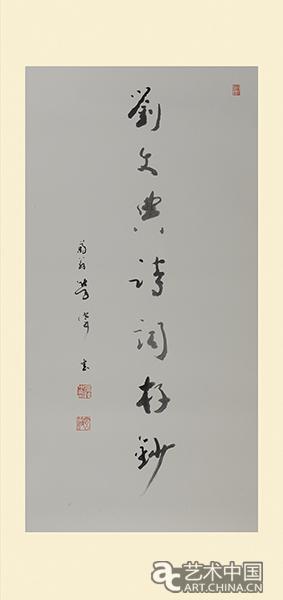 劉文典詩詞存鈔
書
艺术中国
ART.CHINA.CN